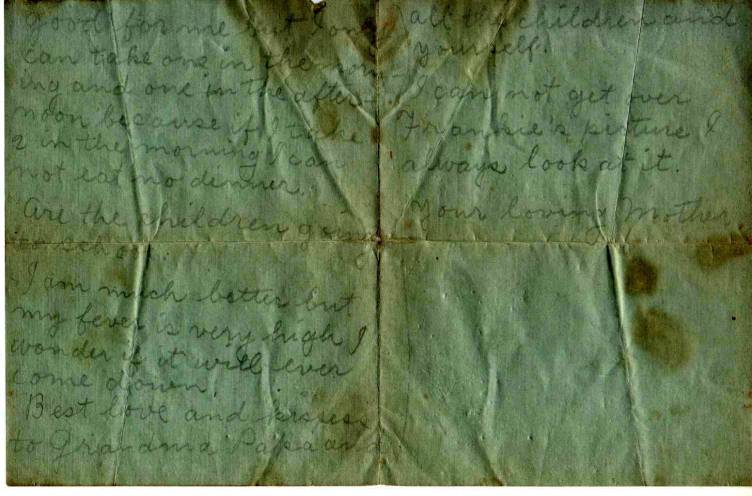 good for me but I only
can take one in the morn
ing and one in the after-
noon because if I take
2 in the morning I can
not eat no dinner.
Are the children going
to school
I am much better but
my fever is very high I
wonder if it will ever
come down.
Best love and kisses
to Grandma Papa and
all the children and
yourself.
I can not get over
Frankie's picture I
always look at it.
Your loving Mother